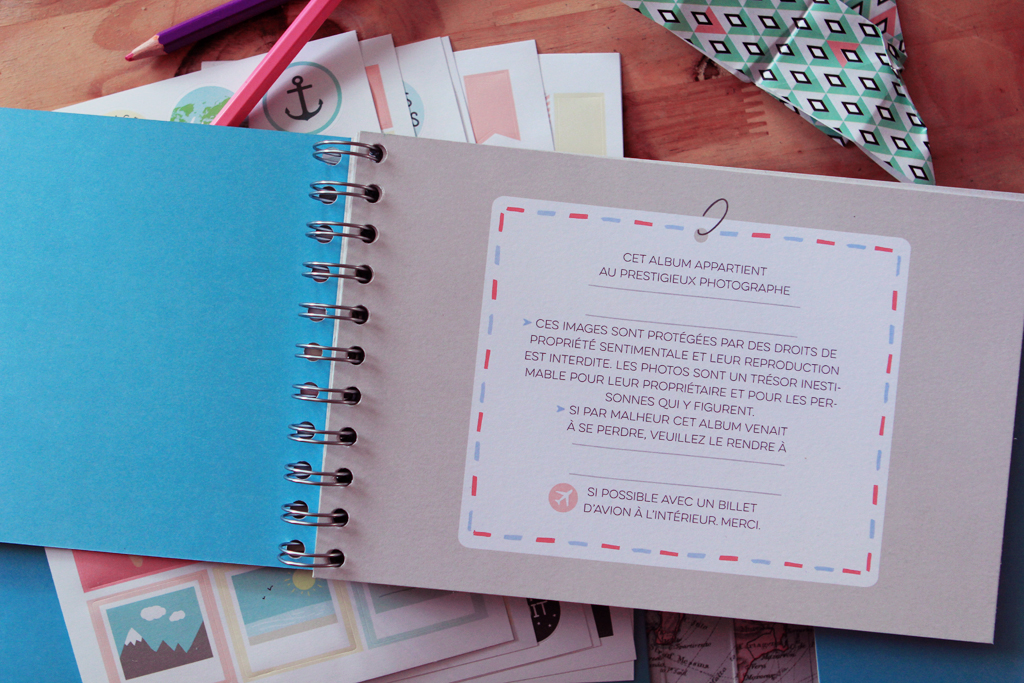 CET ALBUM APPARTIENT
AU PRESTIGIEUX PHOTOGRAPHE
➤ CES IMAGES SONT PROTÉGÉES PAR DES DROITS DE
PROPRIÉTÉ SENTIMENTALE ET LEUR REPRODUCTION
EST INTERDITE. LES PHOTOS SONT UN TRÉSOR INESTI-
MABLE POUR LEUR PROPRIÉTAIRE ET POUR LES PER-
SONNES QUI Y FIGURENT.
➤ SI PAR MALHEUR CET ALBUM VENAIT
À SE PERDRE, VEUILLEZ LE RENDRE À
SI POSSIBLE AVEC UN BILLET
D'AVION À L'INTÉRIEUR. MERCI.